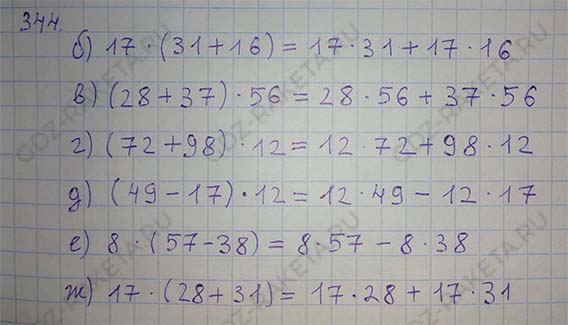 344.
б) 17 · (31 + 16) = 17 · 31 + 17 · 16
в) (28 + 37) · 56 = 28 · 56 + 37 · 56
г) (72 + 98) · 12 = 12 · 72 + 98 · 12
д) (49 − 17) · 12 = 12 · 49 − 12 · 17
е) 8 · (57 - 38) = 8 · 57 − 8 · 38
ж) 17 · (28 + 31) = 17 · 28 + 17 · 31
GDZ-RAKETA.RU
GDZ-RAKETA.RU
GDZ-RAKETA.RU